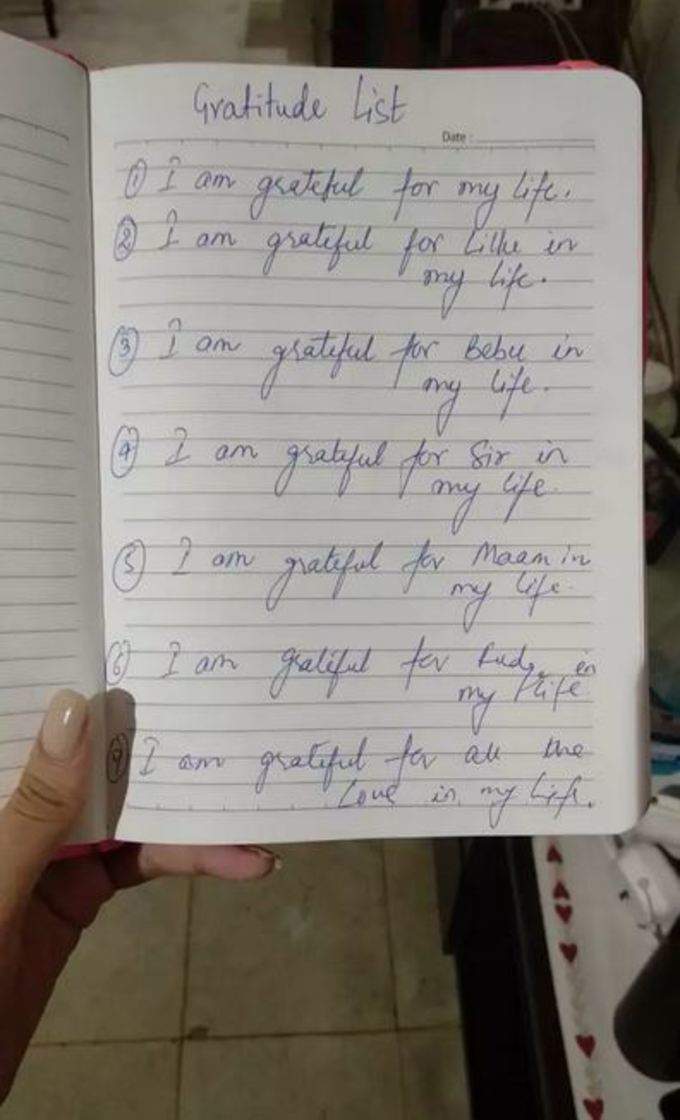 Gratitude List
Date :
① I am grateful for my life.
② I am grateful for in
my life.
③ I am grateful for Bebu in
my life.
④ I am grateful for Sir in
my life.
⑤ I am grateful for Maam in
my life.
⑥ I am grateful for in
my life
⑦ I am grateful for all the
Love in my life.